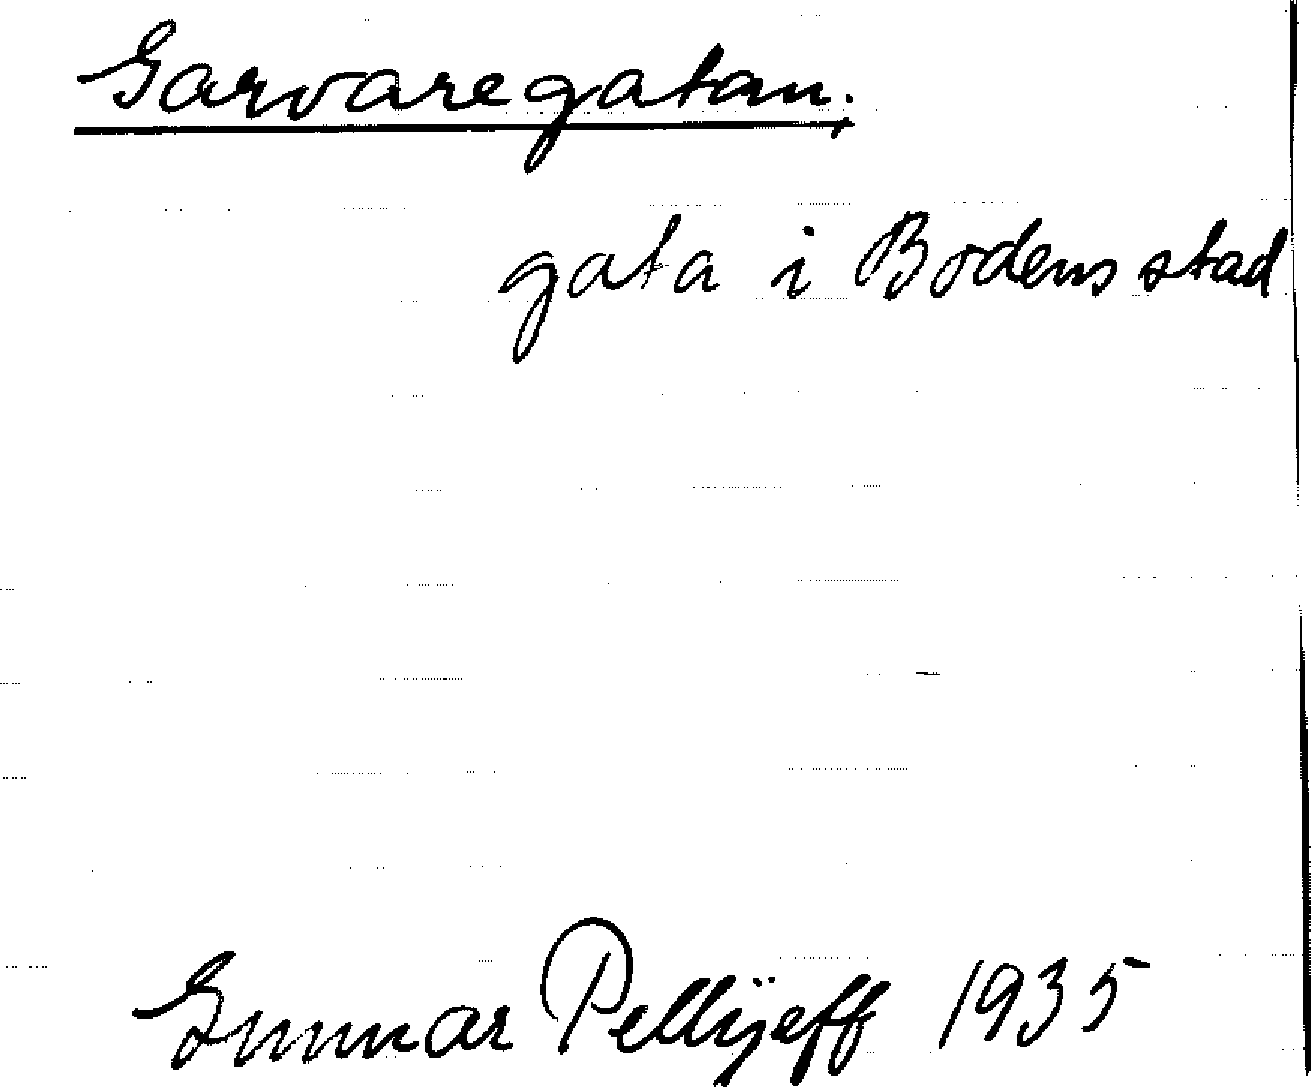 Garvaregatan.
gata i Bodens stad
Gunnar Pellijeff 1935